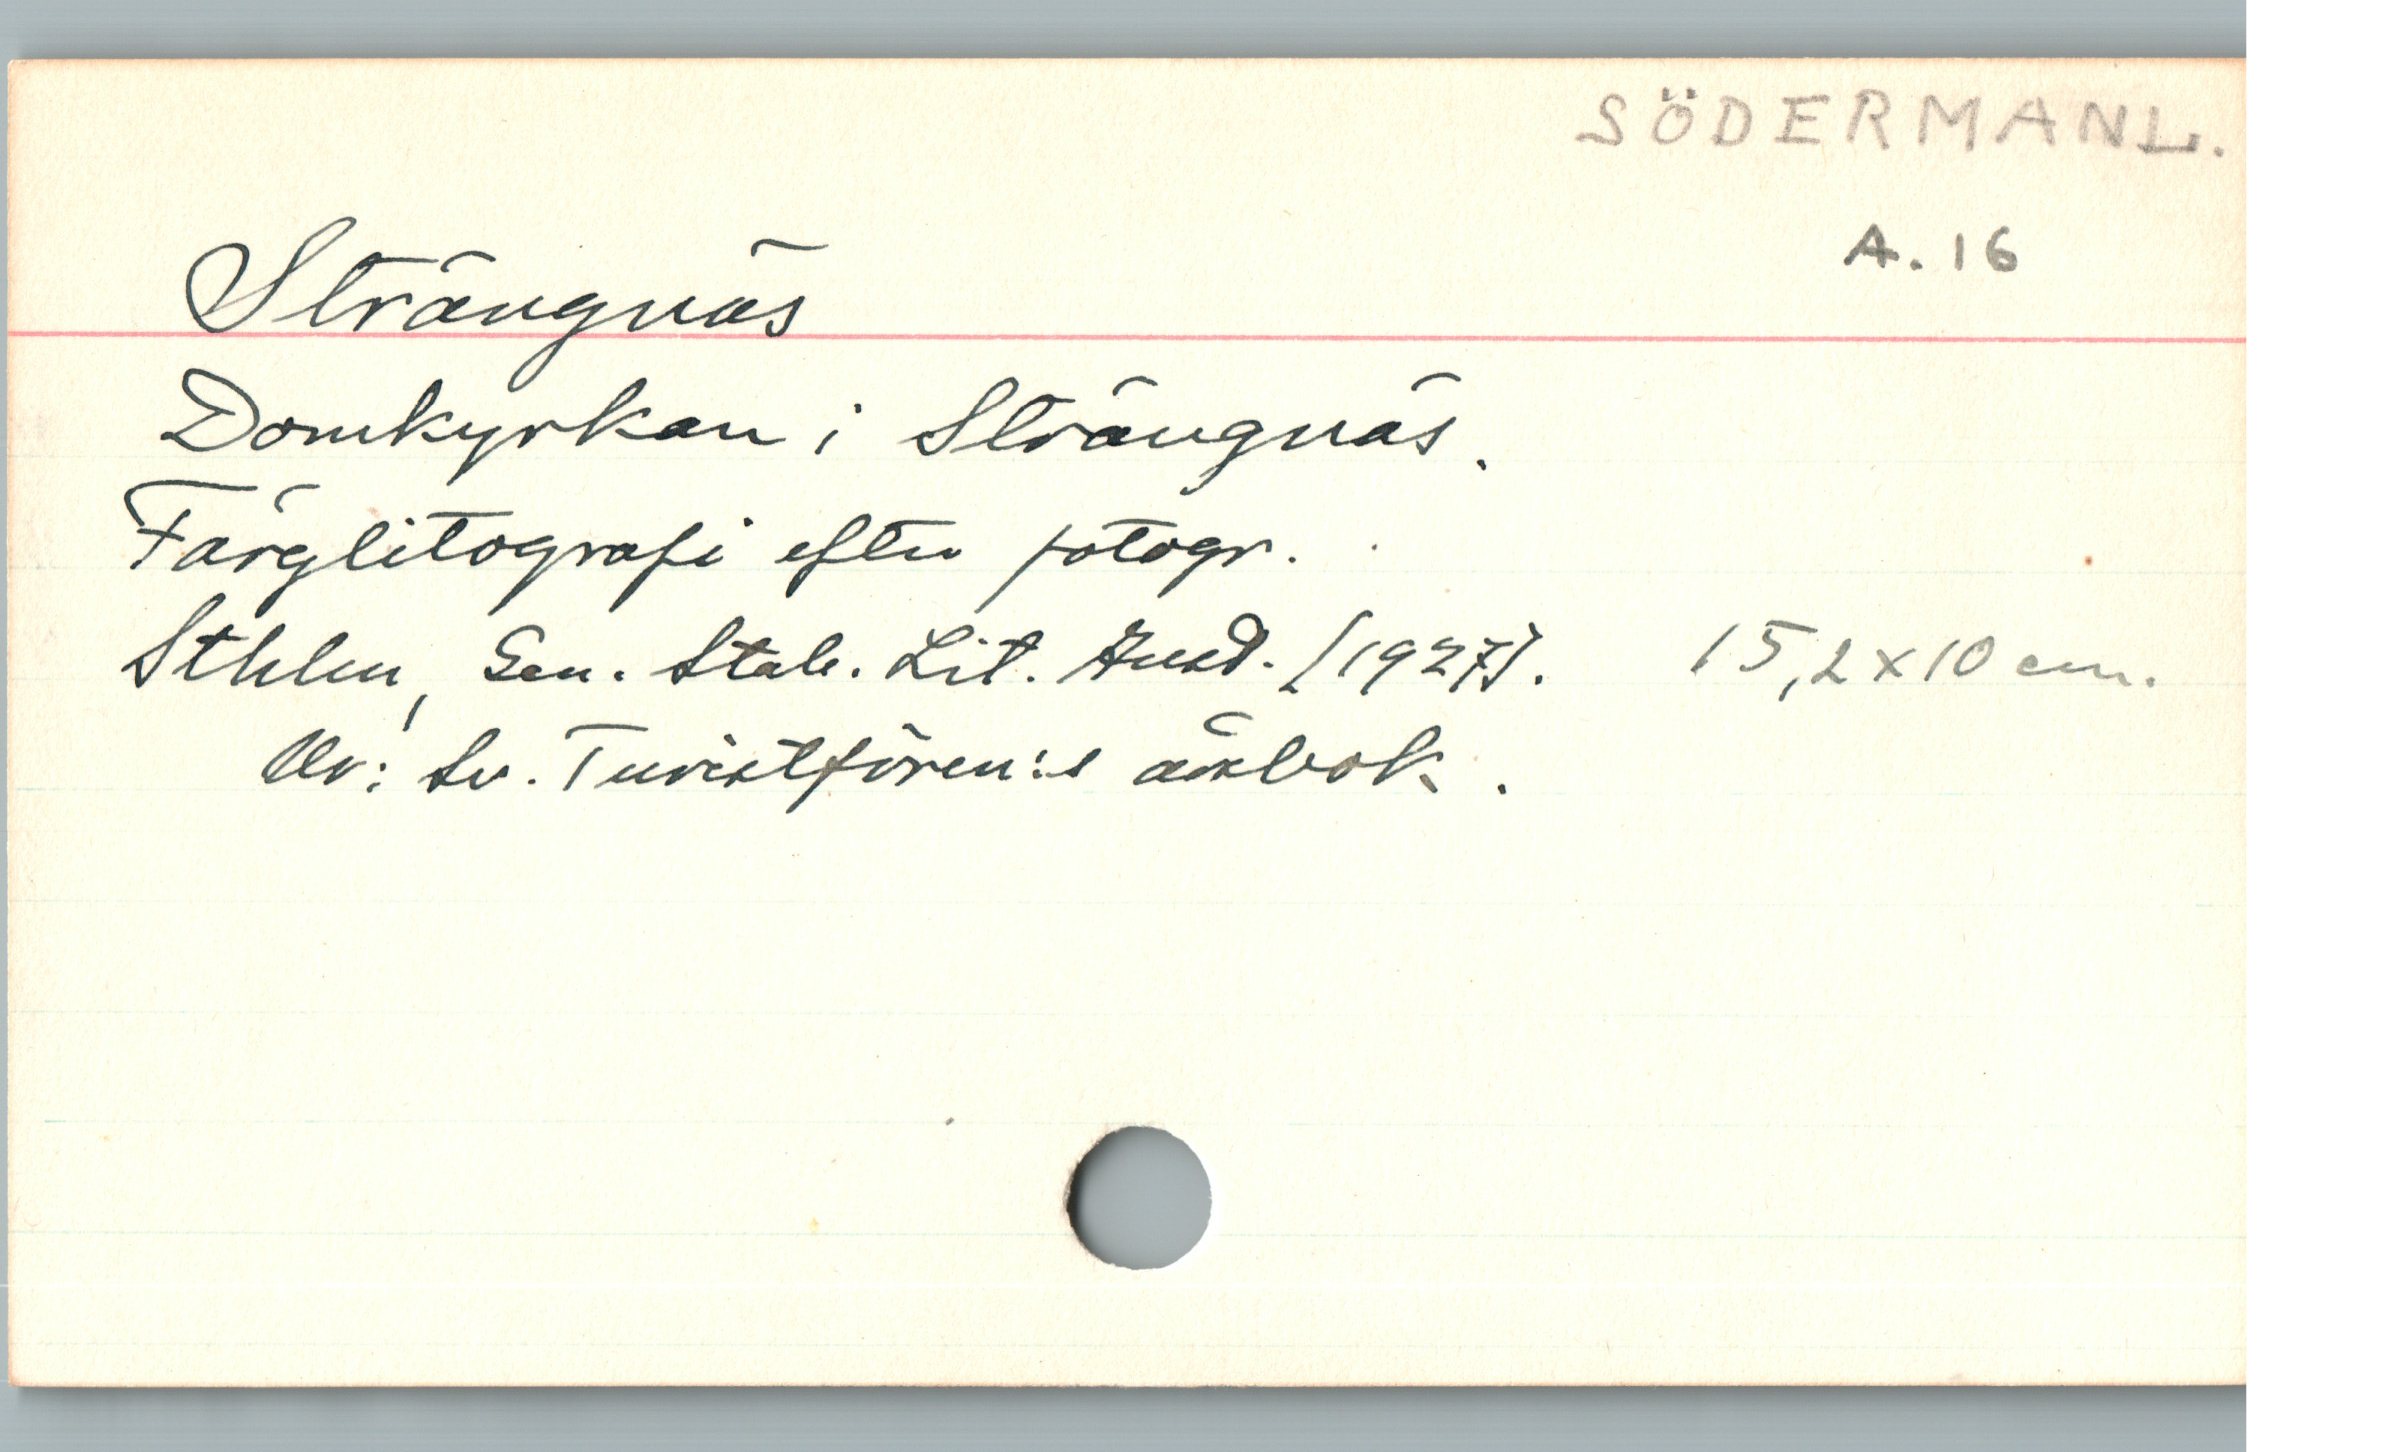 SÖDERMANL.
A. 16
Strängnäs
Domkyrkan i Strängnäs.
Färglitografi efter fotogr.
Sthlm, Gen. Stab. Lit. Anst. [1927]. 15,2 x 10 cm.
Ur: Sv. Turistfören:s årsbok.